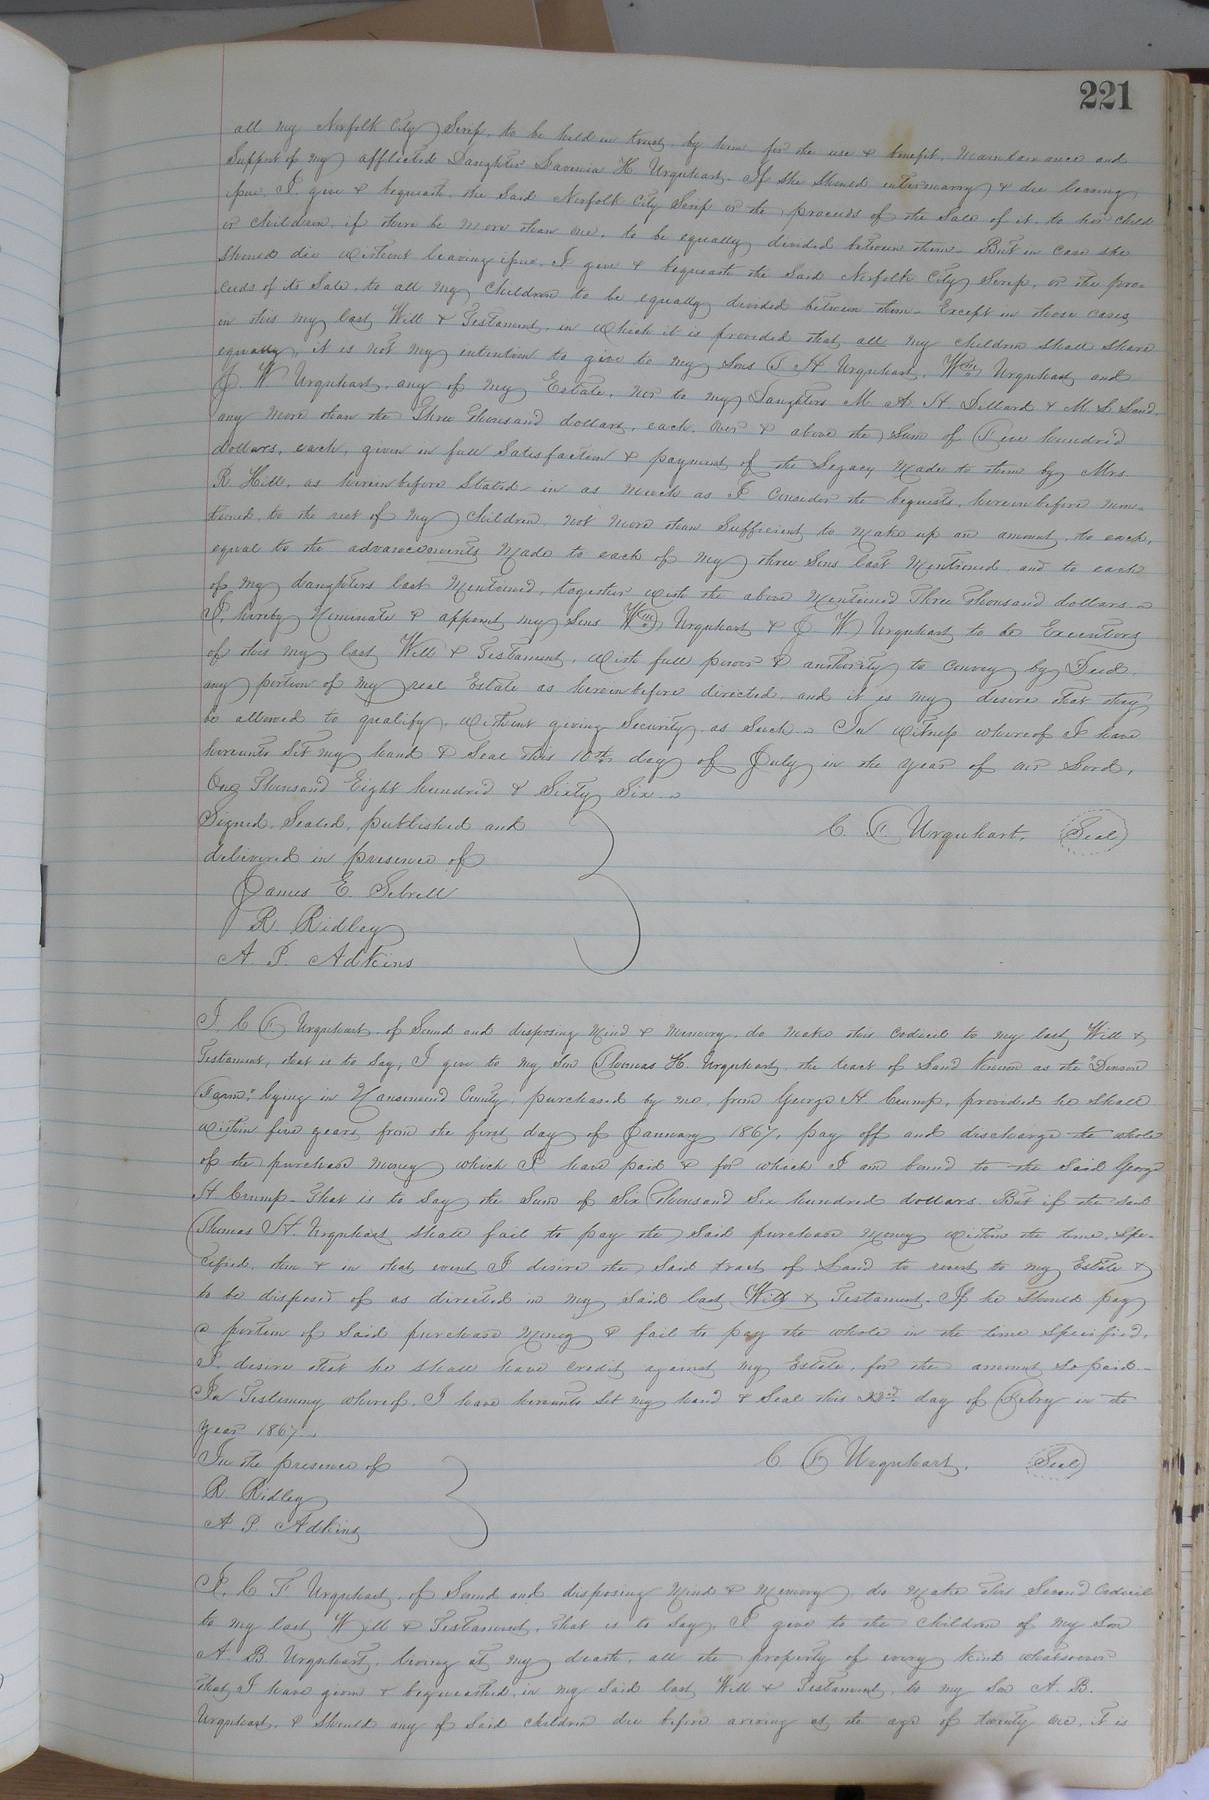 221
all my Norfolk City Scrip, to be held in trust by him for the use & benefit, maintainance and
Support of my afflicted Daughter Lavinia H. Urquhart. If she should intermarry & die leaving
issue, I give & bequeath, the Said Norfolk City Scrip or the proceeds of the Sale of it, to her child
or children, if there be more than one, to be equally divided between them. But in case she
should die without leaving issue, I give & bequeath the Said Norfolk City Scrip, or the pro-
ceeds of its Sale, to all my children to be equally divided between them. Except in those cases
in this my last Will & Testament, in which it is provided that all my children shall share
equally, it is not my intention to give to my Sons T. H. Urquhart, Wm Urquhart and
J. W. Urquhart, any of my Estate, nor to my Daughters M. A. H. Dillard & M. L. Land
any more than the Three thousand dollars, each, over & above the Sum of Five hundred
dollars, each, given in full Satisfaction & payment of the Legacy made to them by Mrs.
R. Hill, as hereinbefore Stated, in as much as I consider the bequests, hereinbefore men-
tioned, to the rest of my children, not more than Sufficient to make up an amount, to each,
equal to the advancements made to each of my three Sons last mentioned, and to each
of my daughters last mentioned, together with the above mentioned Three thousand dollars.
I, hereby Nominate & appoint my Sons Wm Urquhart & J. W. Urquhart to be Executors
of this my last Will & Testament, with full power & authority to convey by Deed,
any portion of my real Estate as hereinbefore directed, and it is my desire that they
be allowed to qualify, without giving Security as Such. In witness whereof I have
hereunto Set my hand & Seal this 10th day of July in the year of our Lord,
One Thousand Eight hundred & Sixty Six.
Signed, Sealed, published and
delivered in presence of
C. F. Urquhart. Seal
James E. Sebrell
R. Ridley
A. P. Adkins
I, C F Urquhart, of Sound and disposing Mind & Memory, do make this codicil to my last Will &
Testament, that is to Say, I give to my Son Thomas H. Urquhart, the tract of Land known as the "Denson
Farm," lying in Nansemond County, purchased by me, from George H. Crump, provided he Shall
within five years from the first day of January 1867, pay off and discharge the whole
of the purchase money which I have paid & for which I am bound to the Said George
H Crump. That is to Say the Sum of Six Thousand Six hundred dollars. But if the said
Thomas H. Urquhart shall fail to pay the Said purchase Money within the time, Spe-
cified, then & in that event I desire the Said tract of Land to revert to my Estate &
to be disposed of as directed in my Said last Will & Testament. If he Should pay
a portion of Said purchase Money & fail to pay the whole in the time Specified,
I desire that he shall have credit against my Estate, for the amount So paid.
In Testimony whereof, I have hereunto Set my hand & Seal this 22nd day of Febry in the
Year 1867.
In the presence of
C. F. Urquhart. Seal
R. Ridley
A. P. Adkins
I, C F Urquhart, of Sound and disposing Mind & Memory do make this Second Codicil
to my last Will & Testament, that is to Say, I give to the children of my Son
A. B. Urquhart, living at my death, all the property of every kind whatsoever
that I have given & bequeathed, in my Said last Will & Testament, to my Son A. B.
Urquhart, & Should any of Said children die before arriving at the age of twenty one, it is